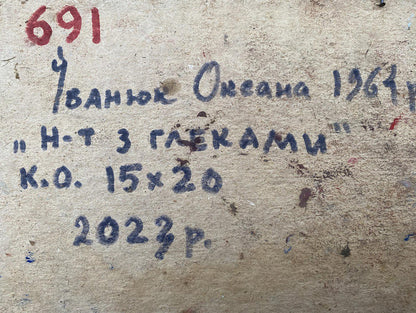 691
Іванюк Оксана 1964 р
„Н-т з глеками"
к.о. 15x20
2023 р.